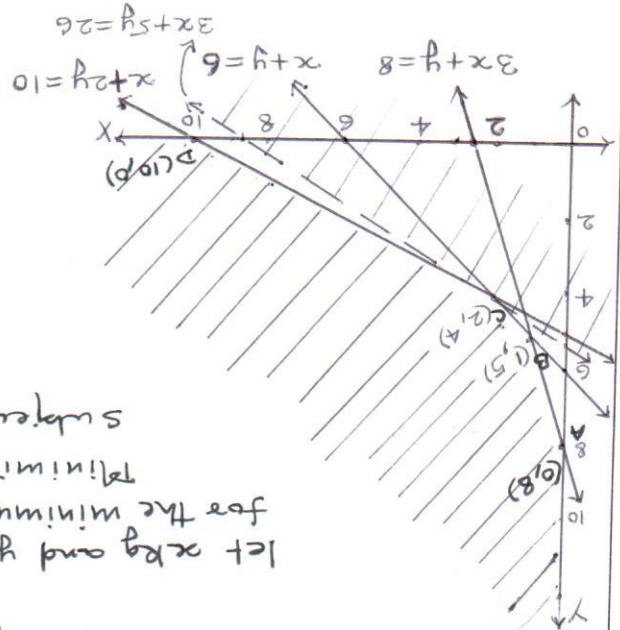 let x kg and y
for the minimum
Minimi
Subjec
Y
10
(0,8)
8
A
6
B (1,5)
C(2,4)
4
2
D(10,0)
0
2
4
6
8
10
X
3x+y=8
x+y=6
x+2y=10
3x+5y=26